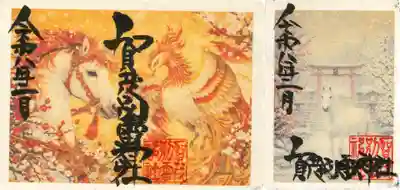 令和八年二月
賀茂別雷神社
令和八年二月
賀茂別雷神社